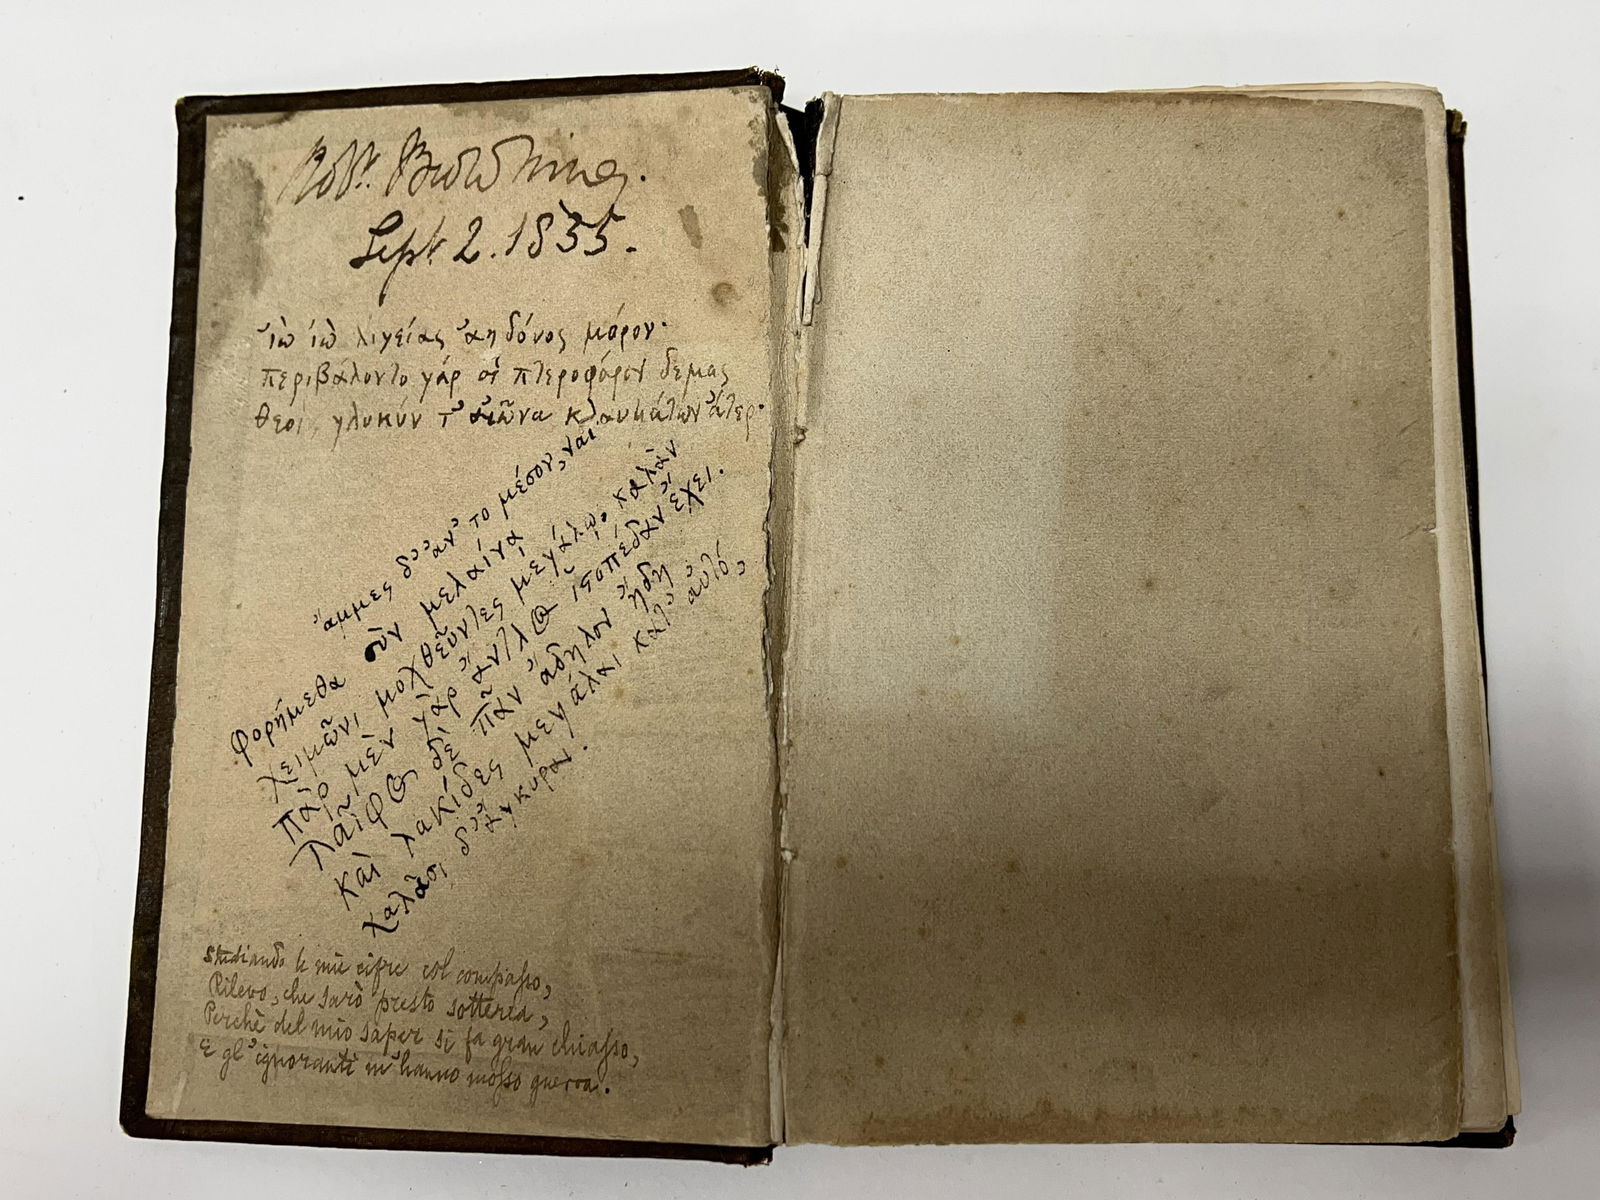 Robt. Browning.
Sept. 2. 1835.
ἰὼ ἰὼ λιγείας ἀηδόνος μόρον·
περιβάλοντο γάρ οἱ πτεροφόρον δεμας
θεοί, γλυκύν τ' αἰῶνα κλαυμάτων ἄτερ·
ἄμμες δ' ὀν' το μέσον, ναῒ
φορήμεθα σὺν μελαίνα
χειμῶνι μοχθεῦντες μεγάλῳ, καλὰν
πὰρ μὲν γὰρ ἄντλος ἱστοπέδαν ἔχει.
λαῖφος δὲ πᾶν ἄδηλον ἤδη
καὶ λακίδες μεγάλαι κατ' αὐτό,
χαλᾶσι δ' ἄγκυραν.
Studiando le mie cifre col compasso,
Rilevo, che sarò presto sotterra,
Perchè del mio saper si fa gran chiasso,
E gl' ignoranti m' hanno mosso guerra.